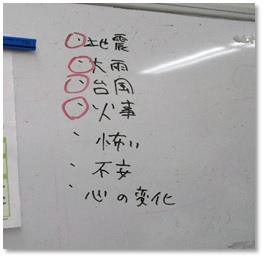 ・地震
・大雨
・台風
・火事
・怖い
・不安
・心の変化